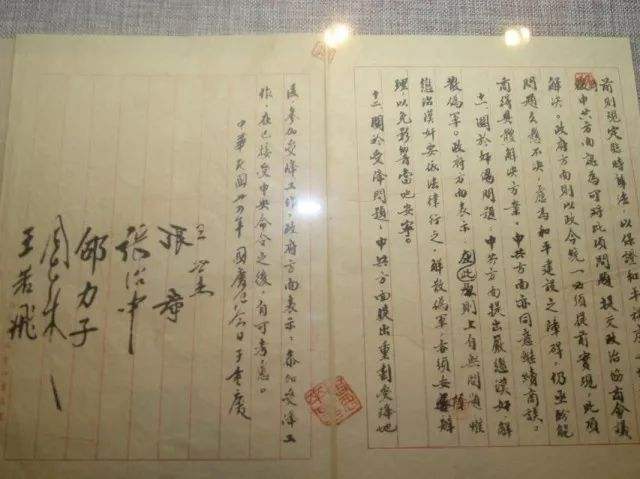 前則規定臨時辦法，以保證和平秩序
中共方面認為可將此項問題提交政治協商會議
解決。政府方面則以政令統一必須提前實現，此項
問題久懸不決，慮為和平建設之障碍，仍亟盼能
商得具體解決方案。中共方面亦同意繼續商談。
十一、關於奸偽問題：中共方面提出嚴懲漢奸，解
散偽軍。政府方面表示：此在原則上自無問題，惟
懲治漢奸要依法律行之，解散偽軍亦須妥慎辦
理，以免影響當地安寧。
十二、關於受降問題：中共方面提出重劃受降地
區，參加受降工作。政府方面表示：參加受降工
作，在已接受中央命令之後，自可考慮。
中華民國卅四年國慶紀念日于重慶
王世杰
張群
張治中
邵力子
周恩來
王若飛